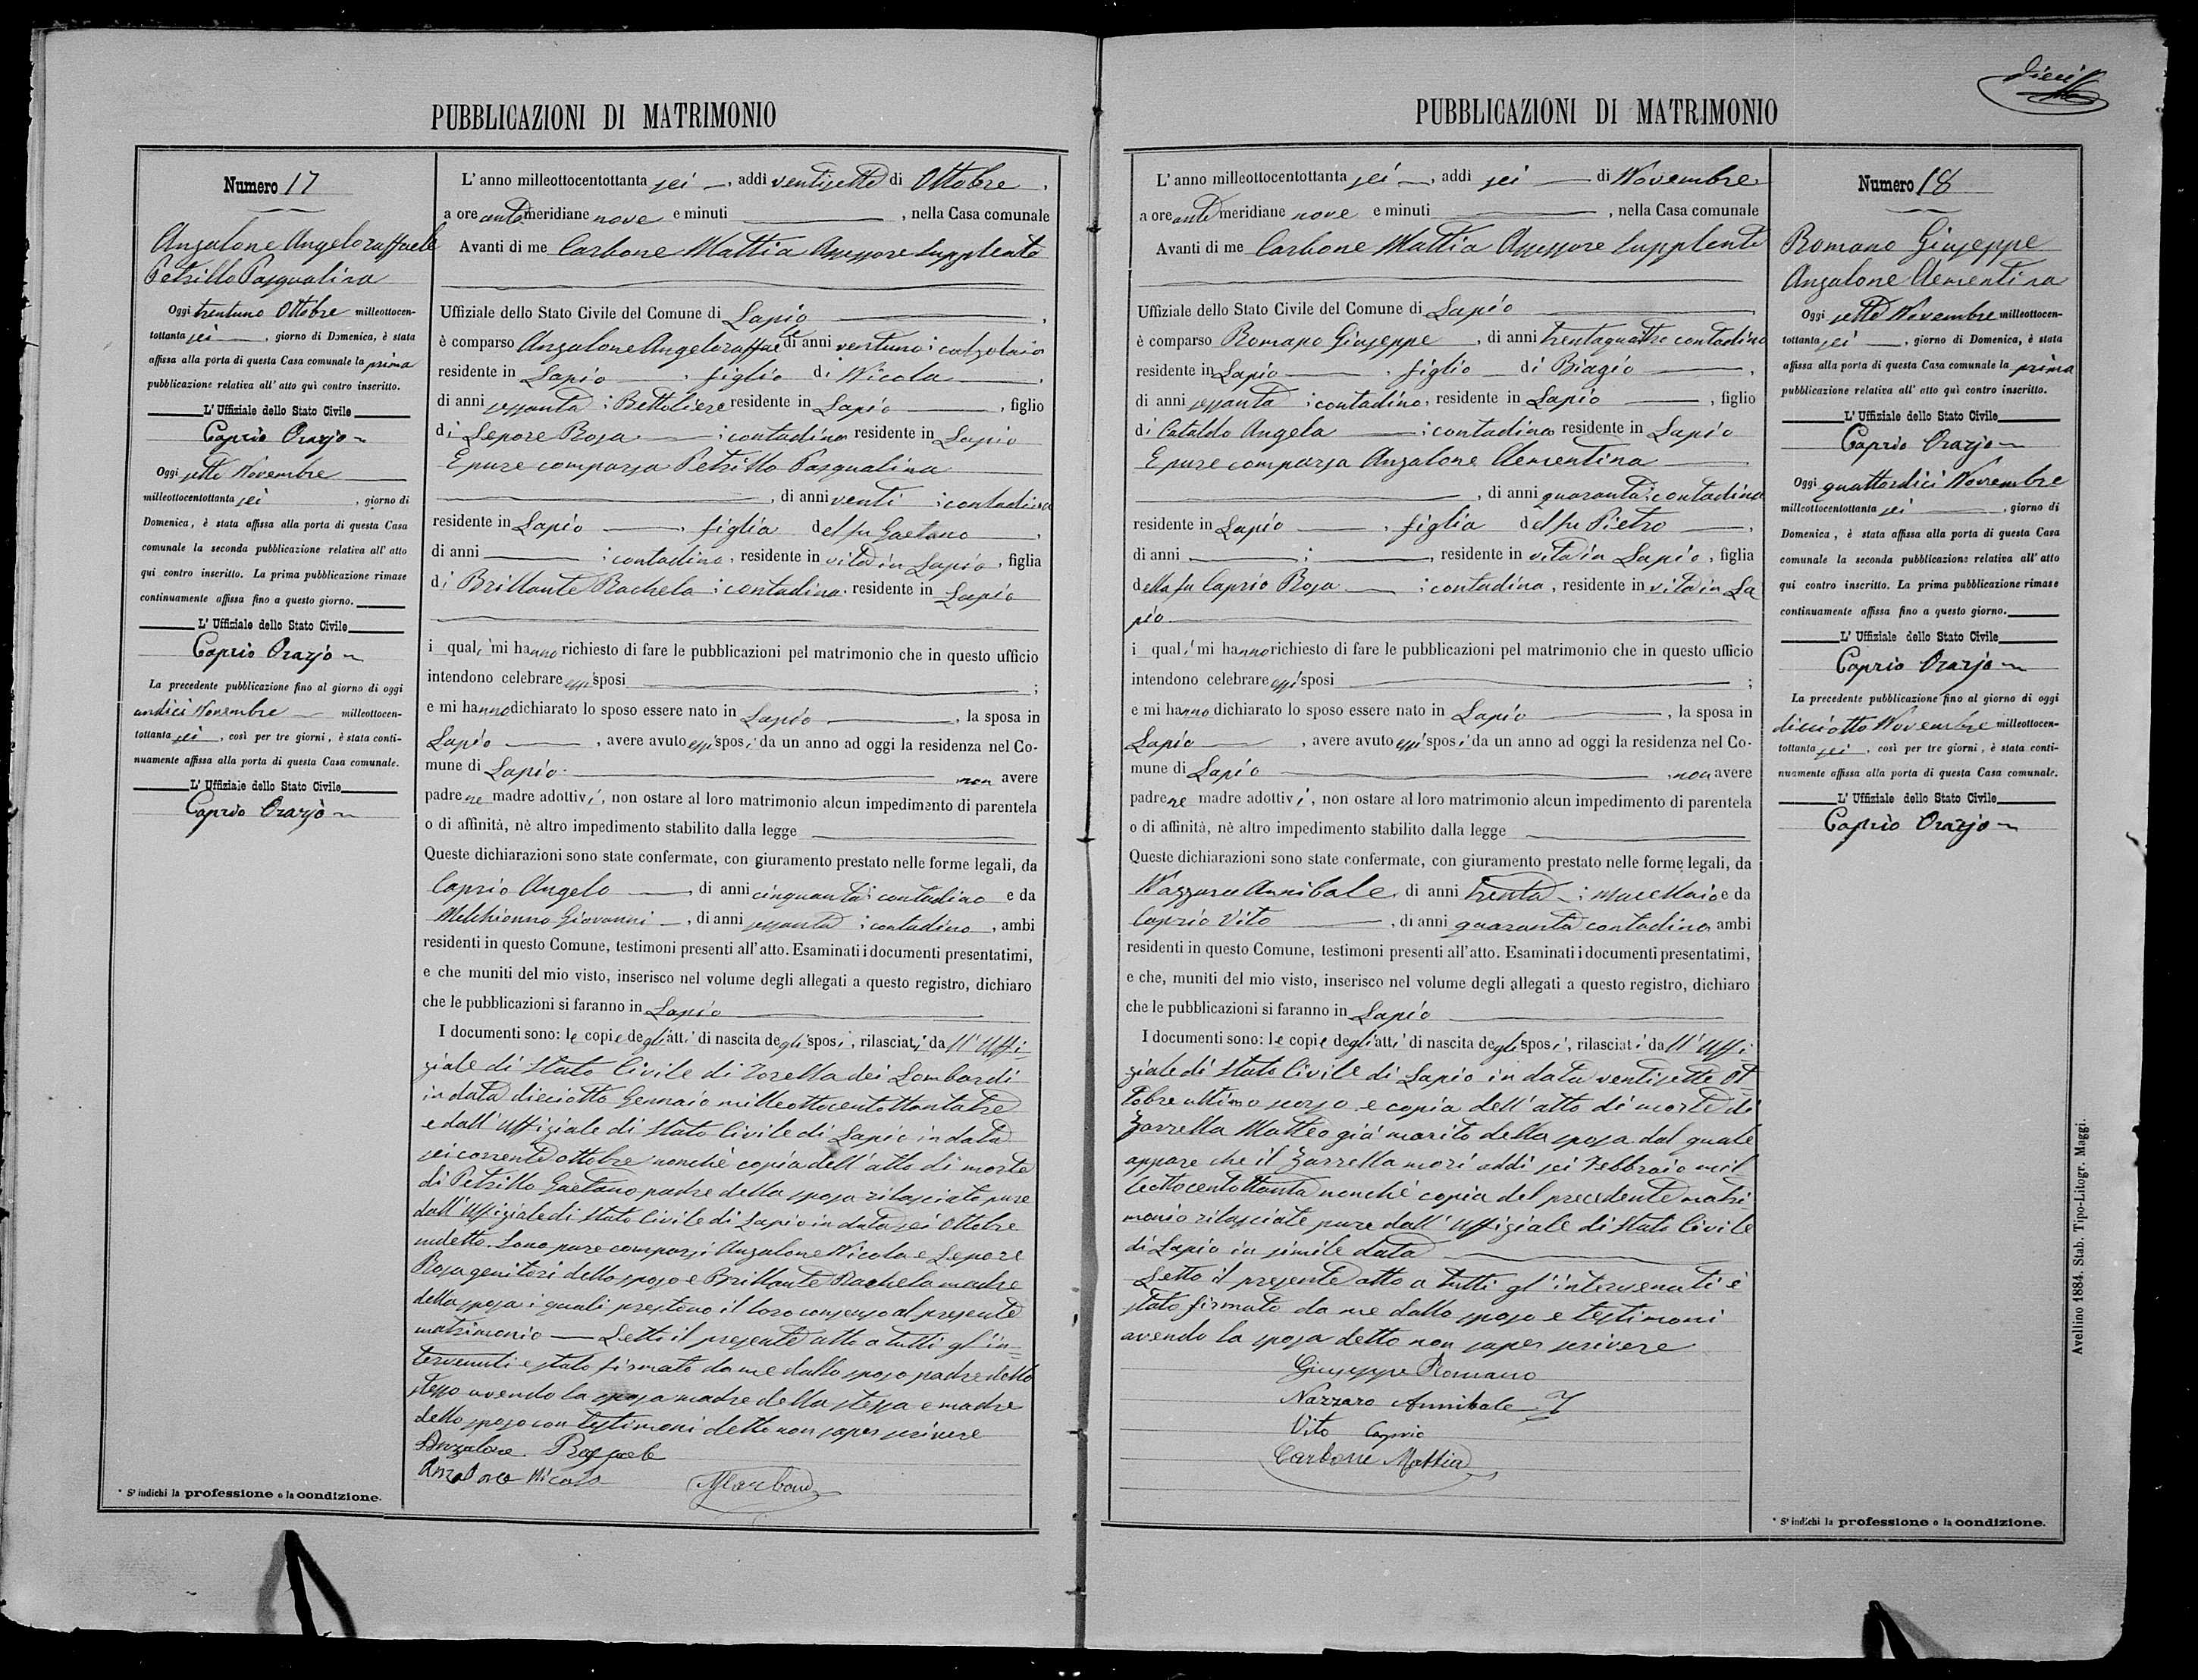 dieci
PUBBLICAZIONI DI MATRIMONIO
Numero 17
Anzalone Angeloraffaele
Petrillo Pasqualina
Oggi trentuno Ottobre milleottocen-
tottanta sei, giorno di Domenica, è stata
affissa alla porta di questa Casa comunale la prima
pubblicazione relativa all' atto quì contro inscritto.
L' Uffiziale dello Stato Civile
Caprio Orazio
Oggi sette Novembre
milleottocentottanta sei, giorno di
Domenica, è stata affissa alla porta di questa Casa
comunale la seconda pubblicazione relativa all' atto
qui contro inscritto. La prima pubblicazione rimase
continuamente affissa fino a questo giorno.
L' Uffiziale dello Stato Civile
Caprio Orazio
La precedente pubblicazione fino al giorno di oggi
undici Novembre milleottocen-
tottanta sei, così per tre giorni, è stata conti-
nuamente affissa alla porta di questa Casa comunale.
L' Uffiziale dello Stato Civile
Caprio Orazio
* S' indichi la professione o la condizione.
L' anno milleottocentottanta sei, addì ventisette di Ottobre,
a ore ante meridiane nove e minuti , nella Casa comunale
Avanti di me Carbone Mattia Assessore Supplente
Uffiziale dello Stato Civile del Comune di Lapio,
è comparso Anzalone Angeloraffaele di anni ventuno; calzolaio
residente in Lapio, figlio di Nicola,
di anni sessanta; Bettoliere residente in Lapio, figlio
di Lepore Rosa; contadina residente in Lapio
E pure comparsa Petrillo Pasqualina
, di anni venti; contadina
residente in Lapio, figlia del fu Gaetano,
di anni ; contadino, residente in vita in Lapio, figlia
di Brillante Rachela; contadina, residente in Lapio
i quali mi hanno richiesto di fare le pubblicazioni pel matrimonio che in questo ufficio
intendono celebrare essi sposi ;
e mi hanno dichiarato lo sposo essere nato in Lapio, la sposa in
Lapio, avere avuto essi sposi da un anno ad oggi la residenza nel Co-
mune di Lapio, non avere
padre ne madre adottivi, non ostare al loro matrimonio alcun impedimento di parentela
o di affinità, nè altro impedimento stabilito dalla legge
Queste dichiarazioni sono state confermate, con giuramento prestato nelle forme legali, da
Caprio Angelo, di anni cinquanta; contadino e da
Melchionno Giovanni, di anni sessanta; contadino, ambi
residenti in questo Comune, testimoni presenti all'atto. Esaminati i documenti presentatimi,
e che muniti del mio visto, inserisco nel volume degli allegati a questo registro, dichiaro
che le pubblicazioni si faranno in Lapio
I documenti sono: le copie degli atti di nascita degli sposi, rilasciati dall'Uffi-
ziale di Stato Civile di Torella dei Lombardi
in data dieciotto Gennaio milleottocentottantatre
e dall'Uffiziale di Stato Civile di Lapio in data
sei corrente ottobre nonchè copia dell'atto di morte
di Petrillo Gaetano padre della sposa rilasciate pure
dall'Uffiziale di Stato Civile di Lapio in data sei Ottobre
sudetto. Sono pure comparsi Anzalone Nicola e Lepore
Rosa genitori dello sposo e Brillante Rachela madre
della sposa i quali prestono il loro consenso al presente
matrimonio — Letto il presente atto a tutti gl'in-
tervenuti e stato firmato da me dallo sposo padre dello
stesso avendo la sposa madre della stessa e madre
dello sposo con testimoni detto non saper scrivere
Anzalone Raffaele
Anzalone Nicola
PUBBLICAZIONI DI MATRIMONIO
L' anno milleottocentottanta sei, addì sei di Novembre
a ore ante meridiane nove e minuti , nella Casa comunale
Avanti di me Carbone Mattia Assessore Supplente
Uffiziale dello Stato Civile del Comune di Lapio
è comparso Romano Giuseppe, di anni trentaquattro contadino
residente in Lapio, figlio di Biagio,
di anni sessanta; contadino, residente in Lapio, figlio
di Cataldo Angela; contadina residente in Lapio
E pure comparsa Anzalone Clementina
, di anni quaranta; contadina
residente in Lapio, figlia del fu Pietro,
di anni ; , residente in vita in Lapio, figlia
della fu Caprio Rosa; contadina, residente in vita in La
pio
i quali mi hanno richiesto di fare le pubblicazioni pel matrimonio che in questo ufficio
intendono celebrare essi sposi ;
e mi hanno dichiarato lo sposo essere nato in Lapio, la sposa in
Lapio, avere avuto essi sposi da un anno ad oggi la residenza nel Co-
mune di Lapio, non avere
padre ne madre adottivi, non ostare al loro matrimonio alcun impedimento di parentela
o di affinità, nè altro impedimento stabilito dalla legge
Queste dichiarazioni sono state confermate, con giuramento prestato nelle forme legali, da
Nazzaro Annibale, di anni trenta; macellaio e da
Caprio Vito, di anni quaranta contadino, ambi
residenti in questo Comune, testimoni presenti all'atto. Esaminati i documenti presentatimi,
e che, muniti del mio visto, inserisco nel volume degli allegati a questo registro, dichiaro
che le pubblicazioni si faranno in Lapio
I documenti sono: le copie degli atti di nascita degli sposi, rilasciati dall'Uffi-
ziale di Stato Civile di Lapio in data ventisette Ot-
tobre ultimo scorso e copia dell'atto di morte di
Zarrella Matteo già marito della sposa dal quale
appare che il Zarrella morì addì sei Febbraio mil
leottocentottanta nonchè copia del precedente matri
monio rilasciate pure dall'Uffiziale di Stato Civile
di Lapio in simile data
Letto il presente atto a tutti gl'intervenuti è
stato firmato da me dallo sposo e testimoni
avendo la sposa detto non saper scrivere
Giuseppe Romano
Nazzaro Annibale T
Vito Caprio
Carbone Mattia
Numero 18
Romano Giuseppe
Anzalone Clementina
Oggi sette Novembre milleottocen-
tottanta sei, giorno di Domenica, è stata
affissa alla porta di questa Casa comunale la prima
pubblicazione relativa all' atto quì contro inscritto.
L' Uffiziale dello Stato Civile
Caprio Orazio
Oggi quattordici Novembre
milleottocentottanta sei, giorno di
Domenica, è stata affissa alla porta di questa Casa
comunale la seconda pubblicazione relativa all' atto
qui contro inscritto. La prima pubblicazione rimase
continuamente affissa fino a questo giorno.
L' Uffiziale dello Stato Civile
Caprio Orazio
La precedente pubblicazione fino al giorno di oggi
dieciotto Novembre milleottocen-
tottanta sei, così per tre giorni, è stata conti-
nuamente affissa alla porta di questa Casa comunale.
L' Uffiziale dello Stato Civile
Caprio Orazio
* S' indichi la professione o la condizione.
Avellino 1884. Stab. Tipo-Litogr. Maggi.